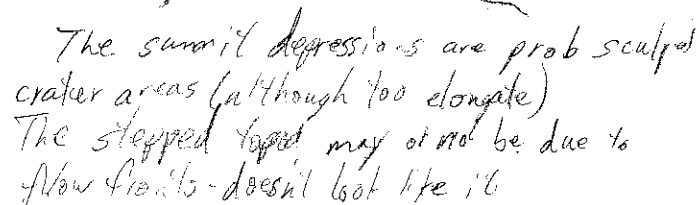 The summit depressions are prob sculpted
crater areas (although too elongate)
The stepped topo may or not be due to
flow fronts - doesn't look like it